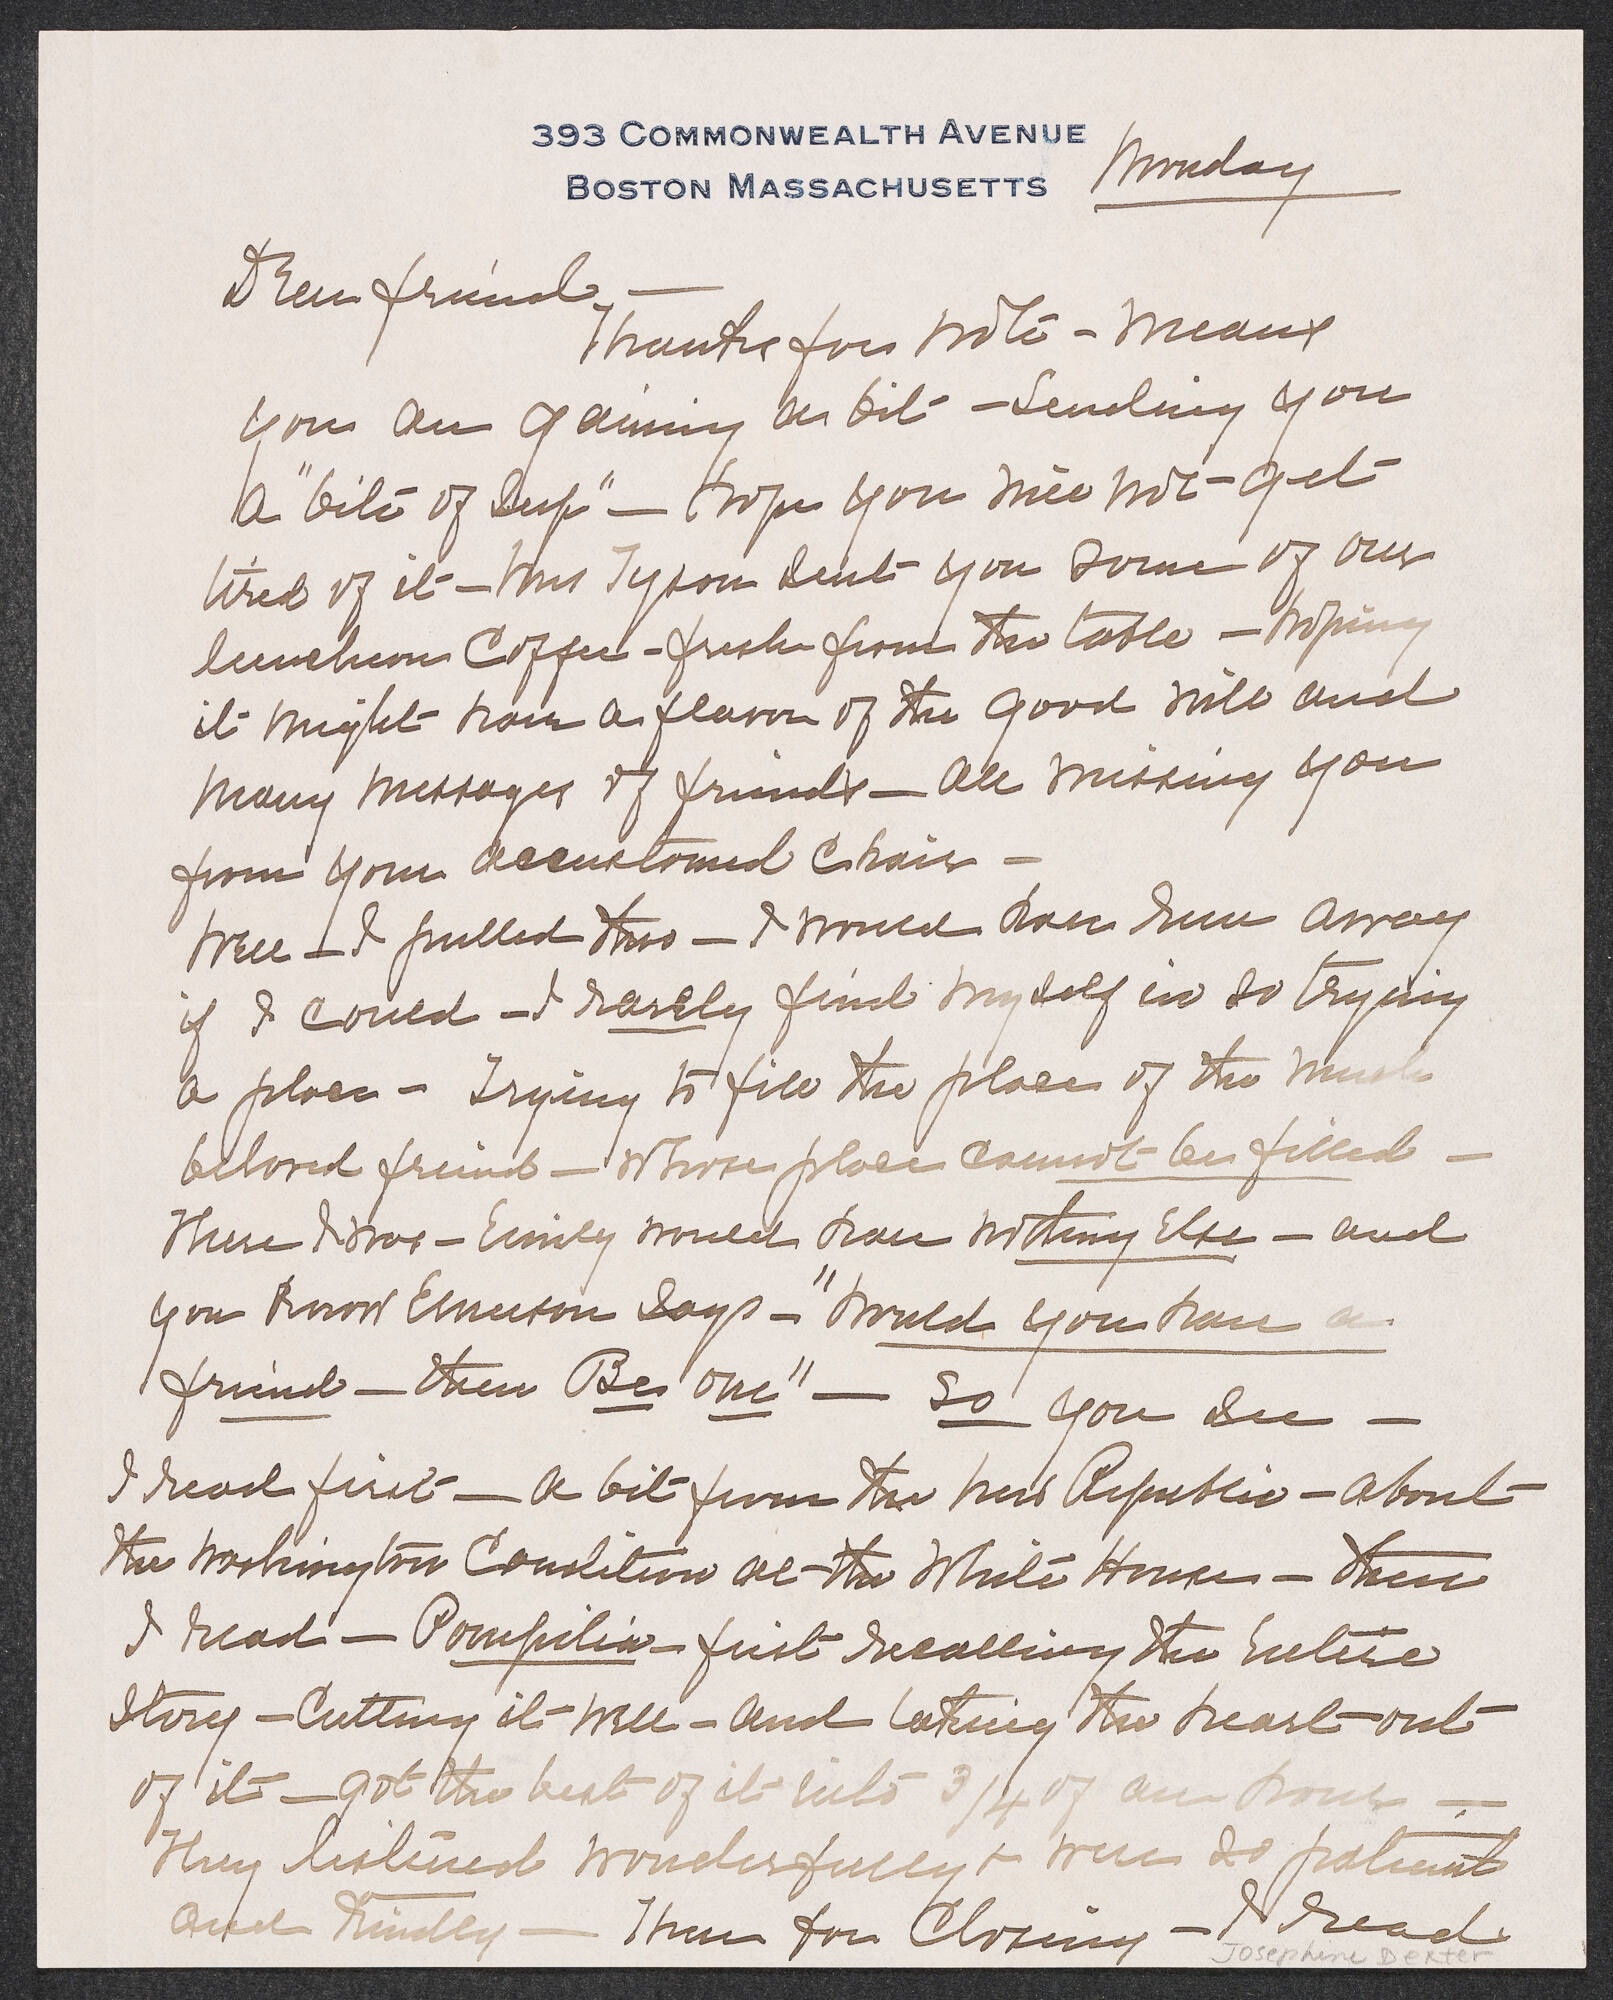 393 COMMONWEALTH AVENUE
BOSTON MASSACHUSETTS
Monday
Dear friend, —
Thanks for note - means
you are gaining a bit - Sending you
a "bite of Sup" — hope you will not get
tired of it — Mrs Tyson sent you some of our
luncheon Coffee - fresh from the table — hoping
it might have a flavor of the good will and
many messages of friends — all missing you
from your accustomed chair —
Well — I pulled thro — I would have run away
if I could — I rarely find myself in so trying
a place - Trying to fill the place of the much
beloved friend — Whose place cannot be filled —
There I was — Emily would have nothing Else — and
you know Emerson says — "Would you have a
friend — then Be one" — So you see —
I read first — a bit from the New Republic — about
the Washington Condition at the White House — then
I read — Pompilia — first recalling the Entire
Story — Cutting it well — and taking the heart out
of it — got the best of it into 3/4 of an hour —
They listened wonderfully + were so patient
and kindly — Then for Closing — I read
Josephine Dexter